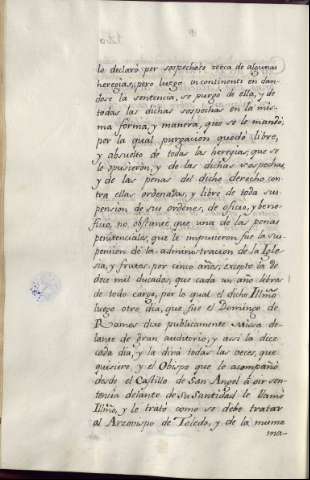 lo declaró por sospechoso zerca de algunas
heregias, pero luego in continenti en dan-
dose la sentencia, se purgó de ella, y de
todas las dichas sospechas en la mis-
ma forma, y manera, que se le mandó,
por la qual purgacion quedó libre,
y absuelto de todas las heregias, que se
le opusieron, y de las dichas sospechas,
y de las penas del dicho derecho con-
tra ellas ordenadas, y libre de toda sus-
pension de sus ordenes, de oficio, y bene-
ficio, no obstante que una de las penas
penitenciales, que le impusieron fue la sus-
pension de la administracion de la Igle-
sia, y frutos por cinco años, excepto los de
doce mil ducados, que cada un año libres
de todo cargo, por lo qual el dicho Illmõ
luego otro dia, que fue el Domingo de
Ramos dixo publicamente Missa de-
lante de gran auditorio, y assi la dice
cada dia, y la dirá todas las veces, que
quisiere, y el Obispo que le acompañó
desde el Castillo de San Angel á oir sen-
tencia delante de Su Santidad le llamó
Illmõ, y lo trató como se debe tratar
al Arzovispo de Toledo, y de la misma
ma-